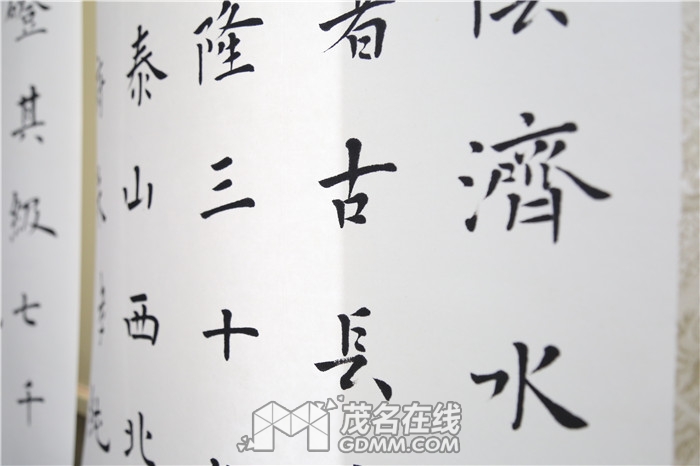 濟水
者古長
隆三十
泰山西北
磴其級七千
茂名在线
GDMM.COM